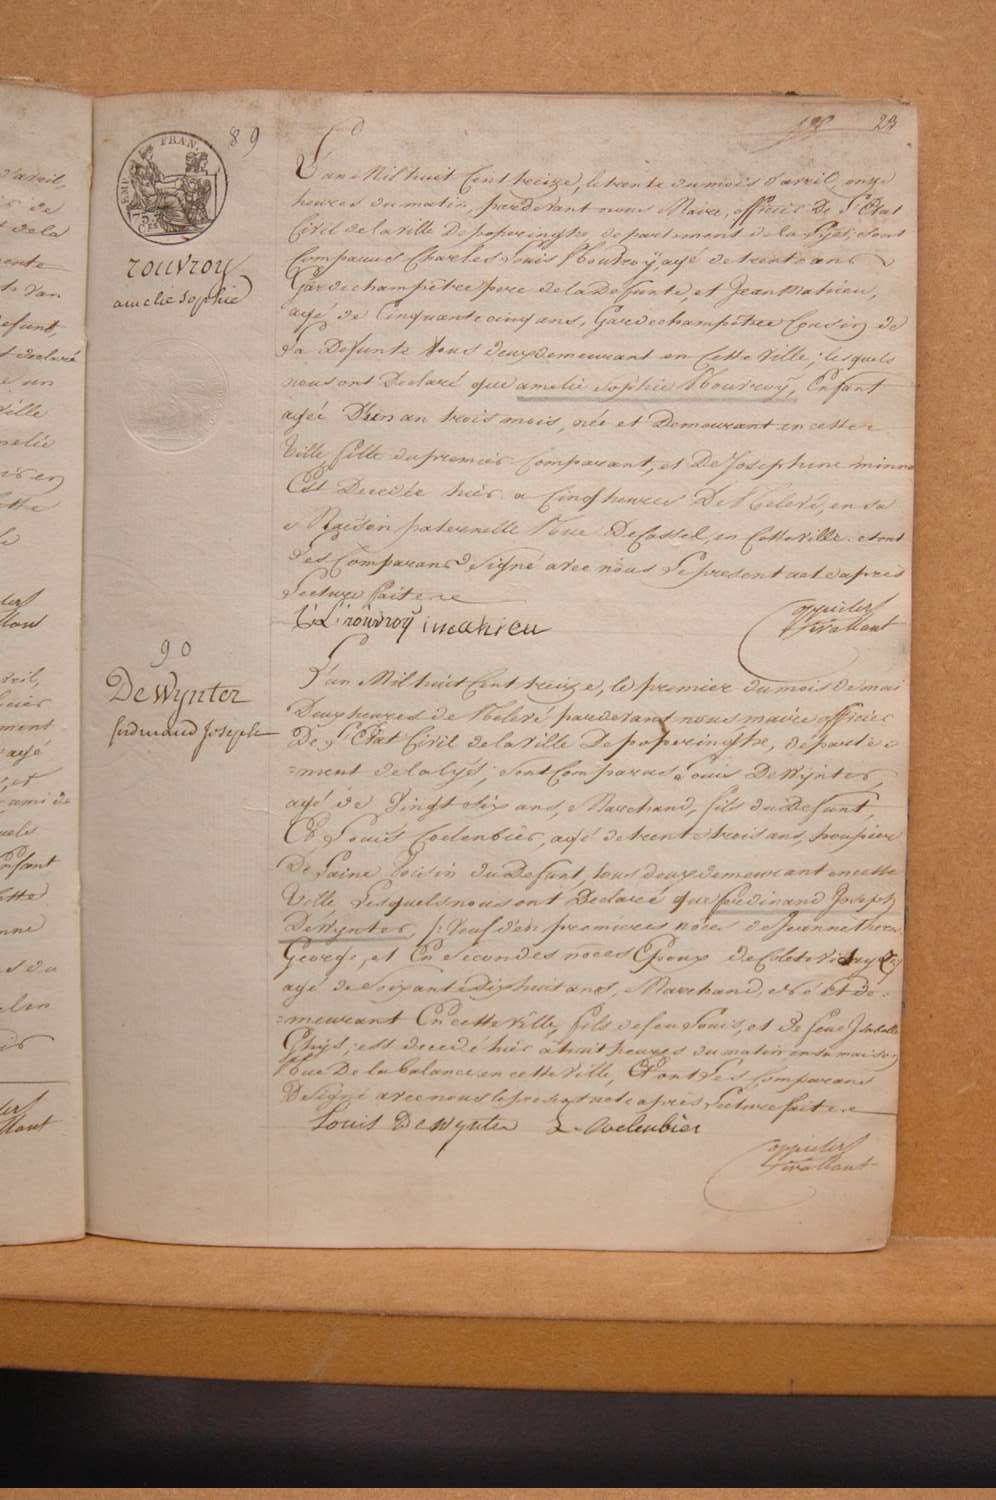 23
89
EMP. FRAN.
75 CES
rouvroy
amelie sophie
L'an Mil huit Cent treize, le trente du mois d'avril, onze
heures du matin, pardevant nous Maire, officier De L'Etat
Civil de la ville De poperinghe departement de la Lys, sont
Comparus Charles Louis Rouvroy, agé de trent ans
Gardechampêtre pere de la Defunte, et Jean Mahieu,
agé de Cinquante cinq ans, Gardechampêtre Cousin de
La Defunte tous deux demeurant en Cette Ville; lesquels
nous ont Declaré que amelie Sophie Rouvroy, Enfant
agée D'un an trois mois, née et Demeurant en cette
Ville fille du premier Comparant, et De Josephine minne
Est Decedée hier a Cinq heures De Relevé, en sa
Maison paternelle Rue De Cassel, en Cette Ville. et ont
Les Comparans Designé avec nous Le present acte apres
Lecture faite
C: L: rouvroy j: mahieu
90
DeWynter
ferdinand Joseph
L'an Mil huit Cent treize, le premier du mois de mai
Deux heures de Relevé pardevant nous maire officier
De L'Etat Civil de la Ville De poperinghe, departe =
=ment de la Lys; sont Comparus Louis DeWynter,
agé de Vingt six ans, Marchand, fils du Defunt,
Et Louis Coelenbier, agé de trent trois ans, houpier
De Laine Voisin du Defunt, tous deux demeurant en cette
Ville Lesquels nous ont Declaré que ferdinand Joseph
DeWynter, Veuf d'en premieres nôces de Jeanne Therese
George, et En Secondes nôces Epoux de Colete
agé de Soixante dix huit ans, Marchand, né et de=
=meurant En cette Ville, fils de feu Louis, et De feue Isabelle
Ghijs; est decedé hier à huit heures du matin en sa maison
Rue De la balance en cette Ville, Et ont Les Comparans
Designé avec nous le present acte après Lecture faite
Louis DeWynter L. Coelenbier